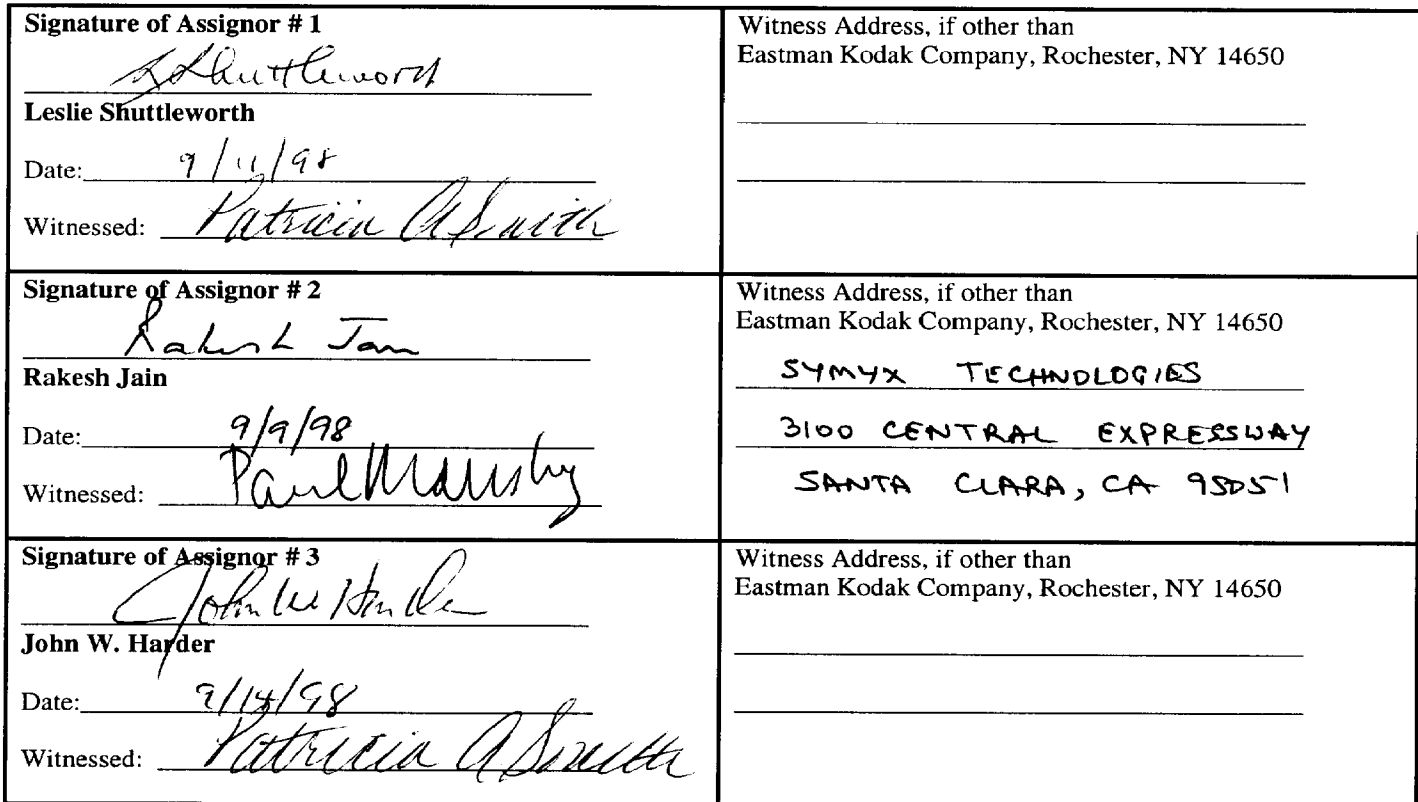 Signature of Assignor # 1
L Shuttleworth
Leslie Shuttleworth
Date: 9/11/98
Witnessed: Patricia A Smith
Witness Address, if other than
Eastman Kodak Company, Rochester, NY 14650
Signature of Assignor # 2
Rakesh Jain
Rakesh Jain
Date: 9/9/98
Witnessed: Paul
Witness Address, if other than
Eastman Kodak Company, Rochester, NY 14650
SYMYX TECHNOLOGIES
3100 CENTRAL EXPRESSWAY
SANTA CLARA, CA 95051
Signature of Assignor # 3
John W Harder
John W. Harder
Date: 9/14/98
Witnessed: Patricia A Smith
Witness Address, if other than
Eastman Kodak Company, Rochester, NY 14650